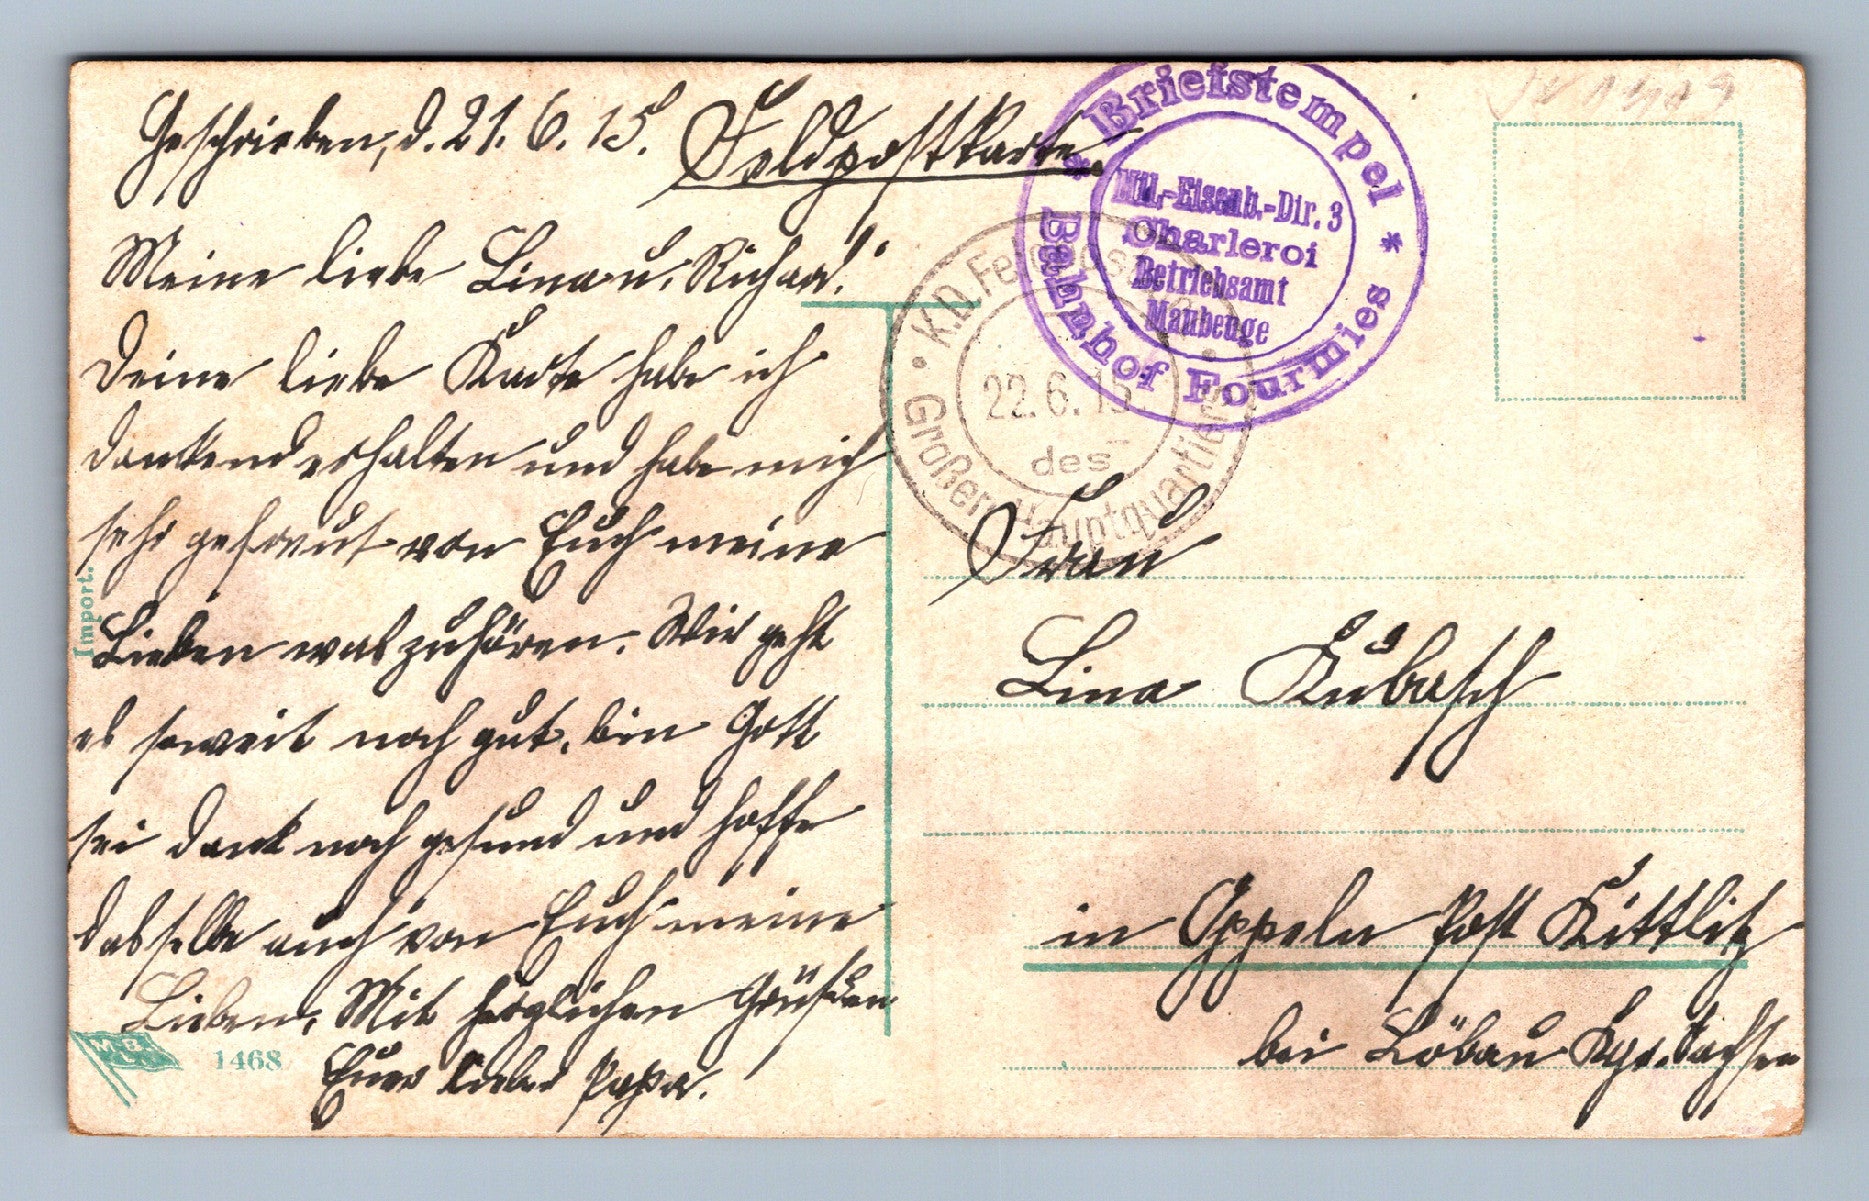 Geschrieben, d. 21. 6. 15. Feldpostkarte.
Meine liebe Lina u. Richard!
Deine liebe Karte habe ich
dankend erhalten und habe mich
sehr gefreut von Euch meine
Lieben was zu hören. Mir geht
es soweit noch gut, bin Gott
sei dank noch gesund und hoffe
dasselbe auch von Euch meine
Lieben. Mit herzlichen Grüßen
Euer lieber Papa.
Import.
M.B.
L.
1468
* Briefstempel *
Mil.-Eisenb.-Dir. 3
Charleroi
Betriebsamt
Maubenge
Bahnhof Fourmies
K.D. Feldpost
22.6.15
des
Großen Hauptquartiers
Frau
Lina Kubasch
in Oppeln Post Kittlitz
bei Löbau Kgr. Sachsen